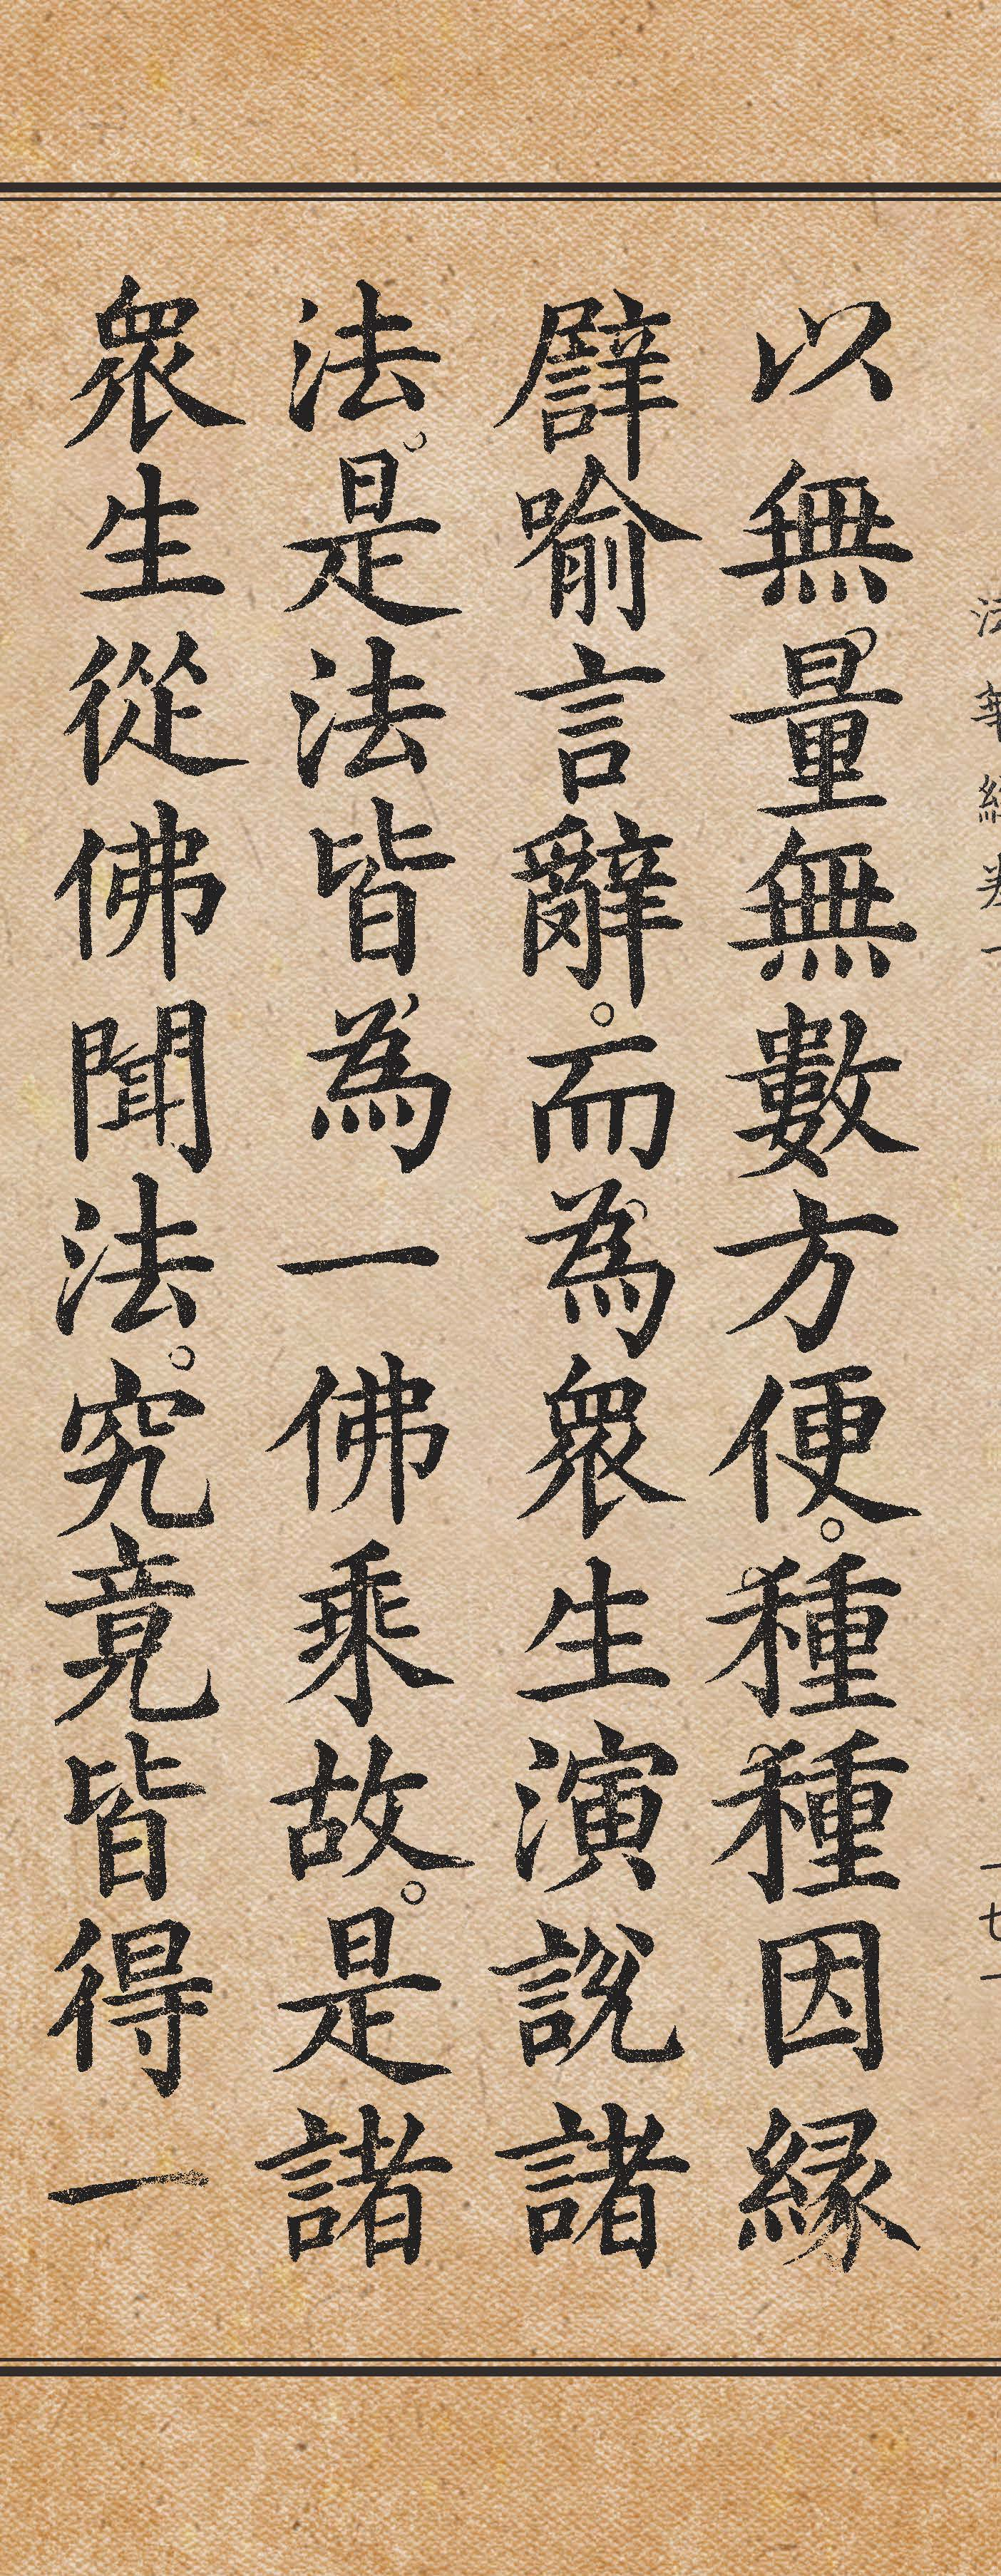 以無量無數方便。種種因縁
譬喻言辭。而為眾生演說諸
法。是法皆為一佛乘故。是諸
眾生從佛聞法。究竟皆得一